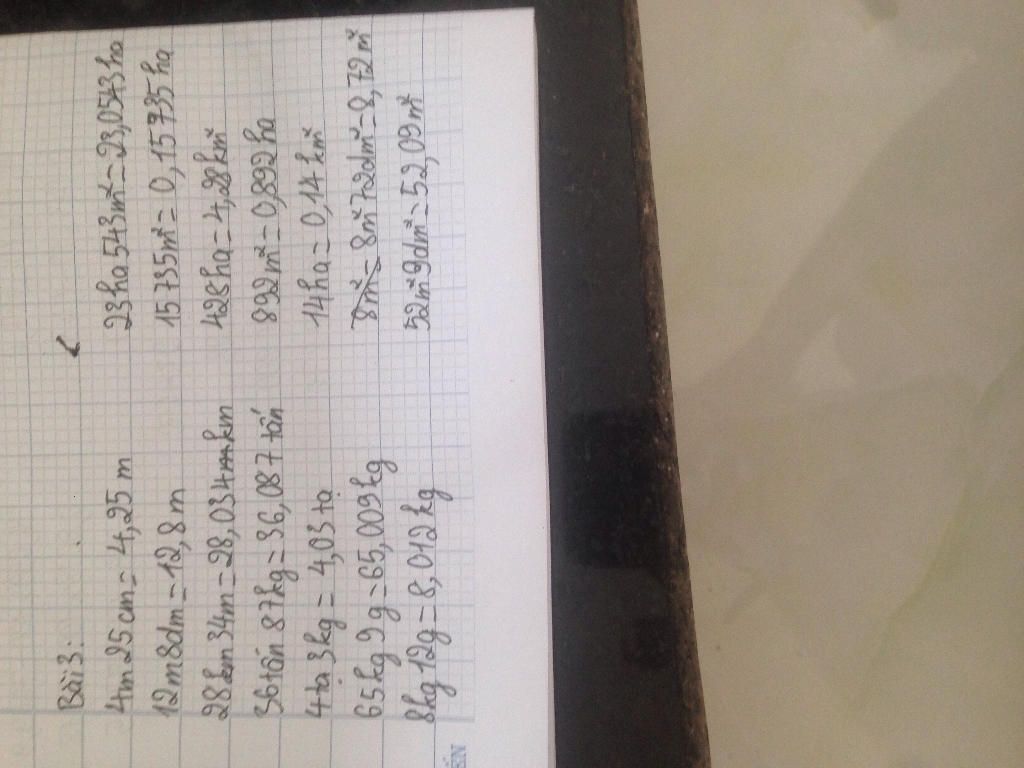 Bài 3:
4m25cm = 4,25 m
12m8dm = 12,8m
28km34m = 28,034 km
36 tấn 87kg = 36,087 tấn
4 tạ 3kg = 4,03 tạ
65kg 9g = 65,009kg
8kg 12g = 8,012 kg
23ha543m² = 23,0543ha
15735m² = 0,15735 ha
428ha = 4,28km²
892m² = 0,892ha
14ha = 0,14 km²
8m² = 8m²72dm² = 8,72m²
52m²9dm² = 52,09m²